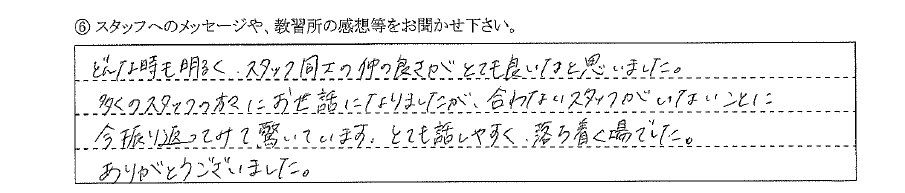 ⑥ スタッフへのメッセージや、教習所の感想等をお聞かせ下さい。
どんな時も明るく、スタッフ同士の仲の良さがとても良いなと思いました。
多くのスタッフの方々にお世話になりましたが、合わないスタッフがいないことに
今振り返ってみて驚いています。とても話しやすく、落ち着く場でした。
ありがとうございました。